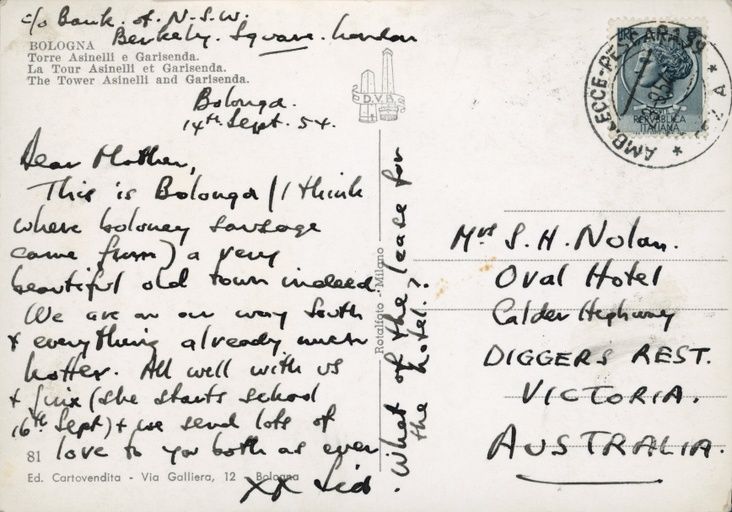 c/o Bank. of. N.S.W.
Berkeley. Square. London
BOLOGNA
Torre Asinelli e Garisenda.
La Tour Asinelli et Garisenda.
The Tower Asinelli and Garisenda.
D.V.B.
Bologna.
14th Sept. 54.
Dear Mother,
This is Bologna (I think
where boloney sausage
came from) a very
beautiful old town indeed.
We are on our way South
& everything already much
hotter. All well with us
& Jinx (she starts school
16th Sept) & we send lots of
love to you both as ever
XX Sid.
What of the lease for
the hotel?
81
Ed. Cartovendita - Via Galliera, 12 - Bologna
Rotalfoto - Milano
LIRE
REPVBBLICA
ITALIANA
AMB. ECCE-PESCARA
Mrs S. H. Nolan.
Oval Hotel
Calder Highway
DIGGERS REST.
VICTORIA.
AUSTRALIA.